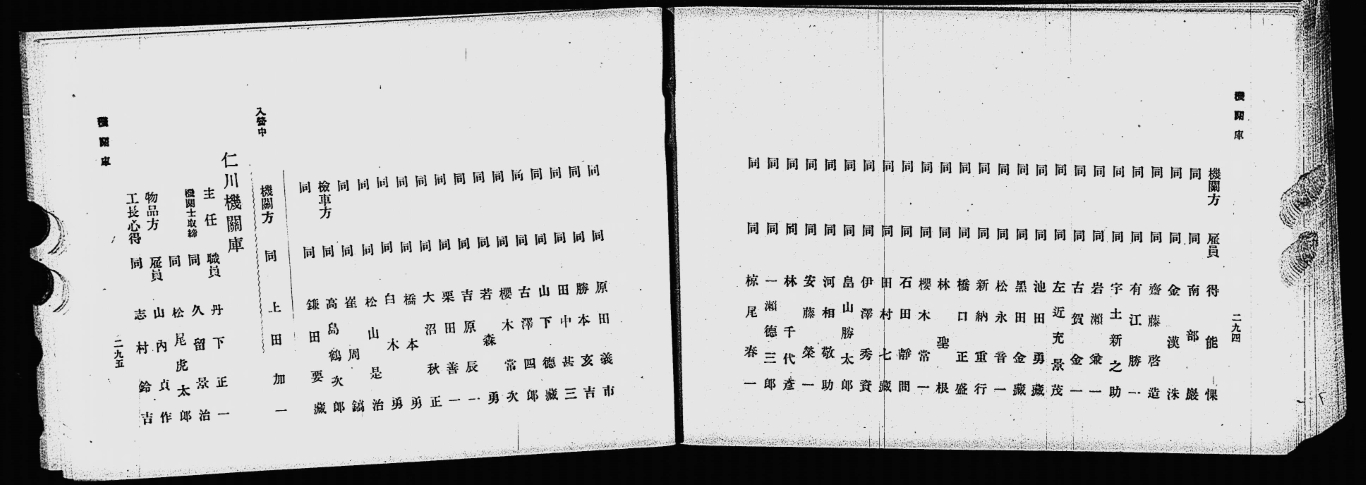 機關庫
二九四
機關方 雇員 得能惈
同 同 南部巖
同 同 金漢洙
同 同 齋藤啓造
同 同 有江勝一
同 同 宇土新之助
同 同 岩瀬榮一
同 同 古賀金一
同 同 左近充景茂
同 同 池田勇藏
同 同 黑田金藏
同 同 松永晉一
同 同 新納重行
同 同 橋口正盛
同 同 林聖根
同 同 櫻木常一
同 同 石田靜間
同 同 田村七藏
同 同 伊澤秀資
同 同 畠山勝太郎
同 同 河相敬助
同 同 安藤榮一
同 同 林千代彥
同 同 一瀬德三郎
同 同 椋尾春一
同 同 原田義市
同 同 勝本亥吉
同 同 田中甚三
同 同 山下德藏
同 同 古澤四郎
同 同 櫻木常次
同 同 若森勇
同 同 吉原辰一
同 同 栗田善一
同 同 大沼秋正
同 同 橋本勇
同 同 白木勇
同 同 松山是治
同 同 崔周鎬
檢車方 同 高島鶴次郎
同 同 鎌田要藏
入營中 機關方 同 上田加一
仁川機關庫
主任 職員 丹下正一
機關士取締 同 久留景治
同 松尾虎太郎
物品方 雇員 山內貞作
工長心得 同 志村鈴吉
機關庫
二九五